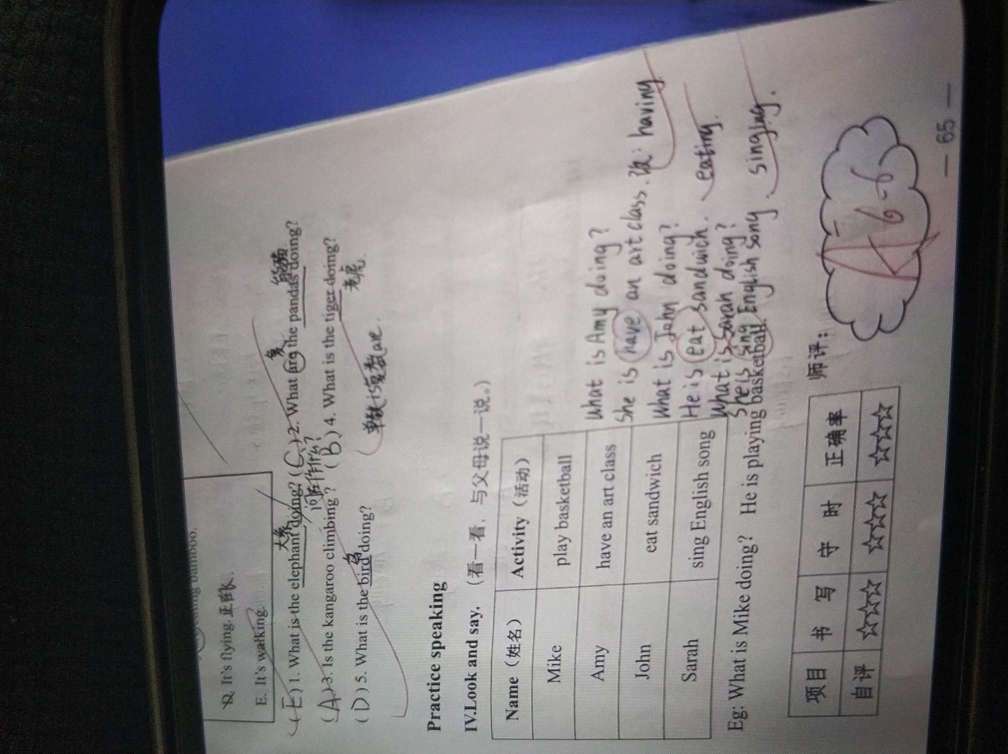 D. It's flying.
E. It's walking.
大象 复 熊猫
(E) 1. What is the elephant doing? (C) 2. What are the pandas doing?
问在作什么?
(A) 3. Is the kangaroo climbing? (B) 4. What is the tiger doing?
鸟 老虎
(D) 5. What is the bird doing?
单数is复数are.
Practice speaking
IV.Look and say. (看一看,与父母说一说。)
Name (姓名) Activity (活动)
Mike play basketball
Amy have an art class
John eat sandwich
Sarah sing English song
What is Amy doing?
She is have an art class. 改: having
What is John doing?
He is eat sandwich. eating.
What is Sarah doing?
She is sing English song. singing.
Eg: What is Mike doing? He is playing basketball.
项目 书 写 守 时 正确率 师评:
自评 ☆☆☆ ☆☆☆ ☆☆☆
A 6-6
— 65 —